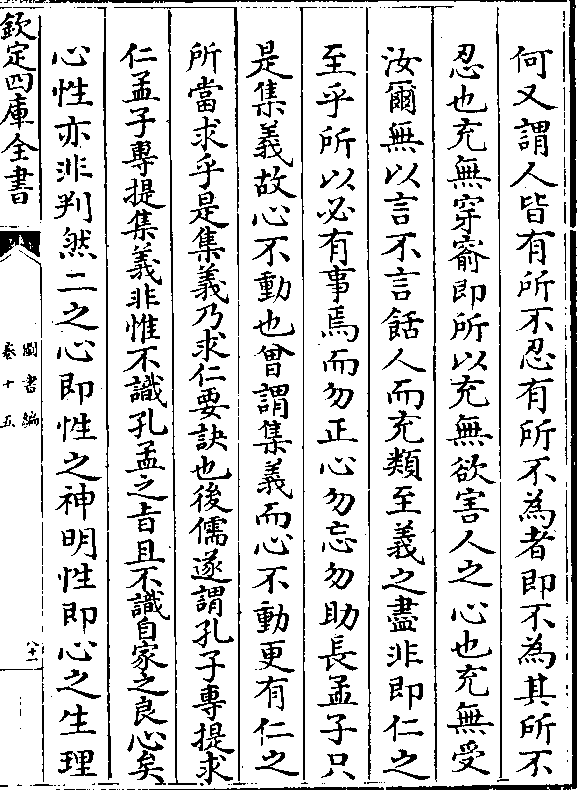 何又謂人皆有所不忍有所不為者即不為其所不
忍也充無穿窬即所以充無欲害人之心也充無受
汝爾無以言不言餂人而充類至義之盡非即仁之
至乎所以必有事焉而勿正心勿忘勿助長孟子只
是集義故心不動也曾謂集義而心不動更有仁之
所當求乎是集義乃求仁要訣也後儒遂謂孔子專提求
仁孟子專提集義非惟不識孔孟之旨且不識自家之良心矣
心性亦非判然二之心即性之神明性即心之生理
欽定四庫全書
圖書編
卷十五